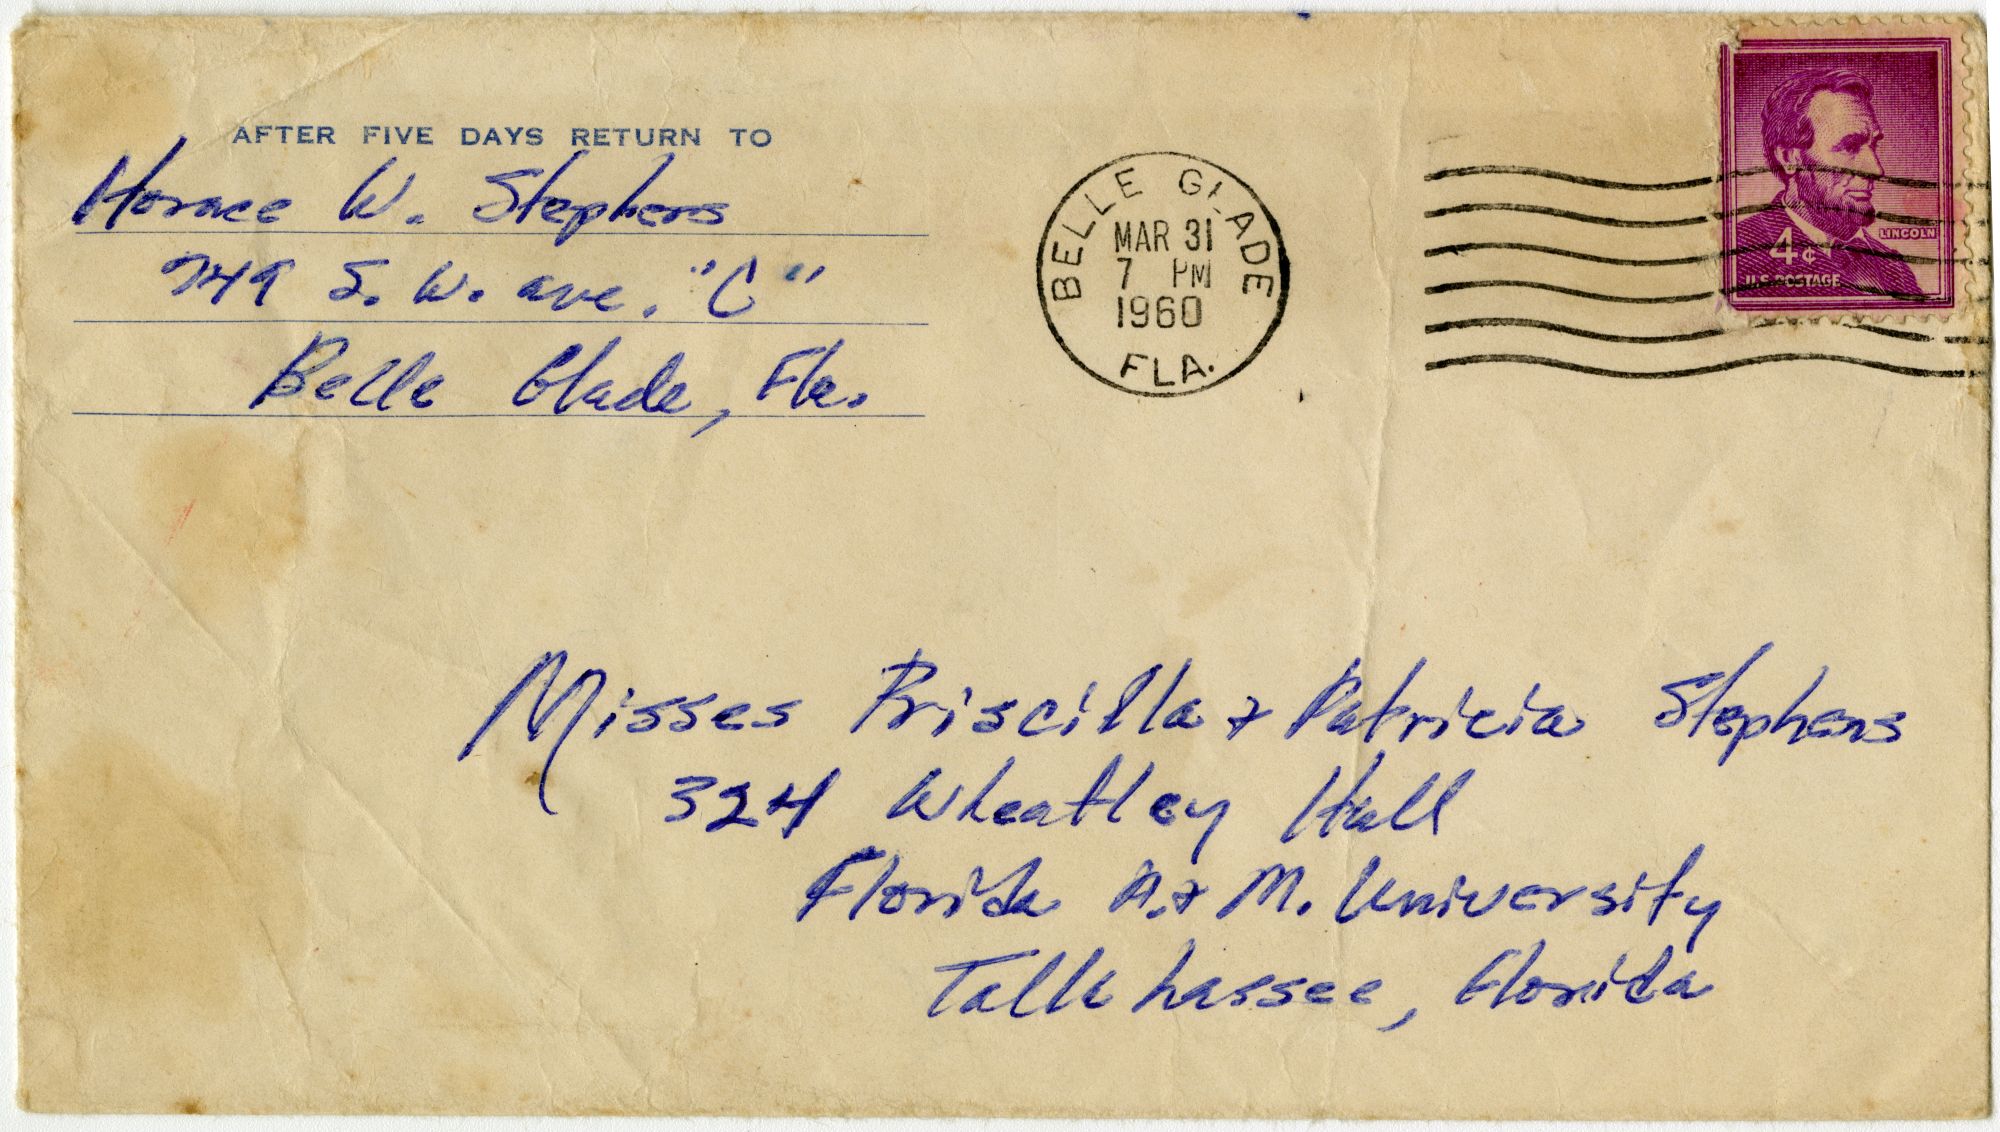 AFTER FIVE DAYS RETURN TO
Horace W. Stephens
749 S. W. ave. "C"
Belle Glade, Fla.
BELLE GLADE
MAR 31
7 PM
1960
FLA.
LINCOLN
4¢
U.S. POSTAGE
Misses Priscilla & Patricia Stephens
324 Wheatley Hall
Florida A. & M. University
Tallahassee, Florida